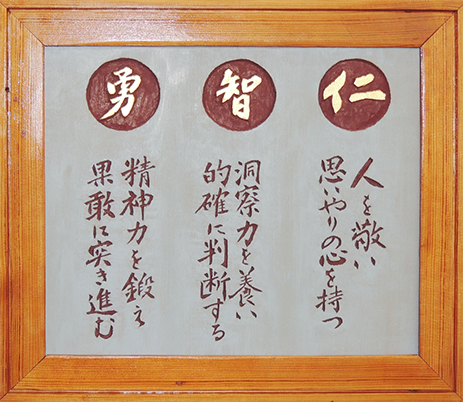 仁
人を敬い
思いやりの心を持つ
智
洞察力を養い
的確に判断する
勇
精神力を鍛え
果敢に突き進む